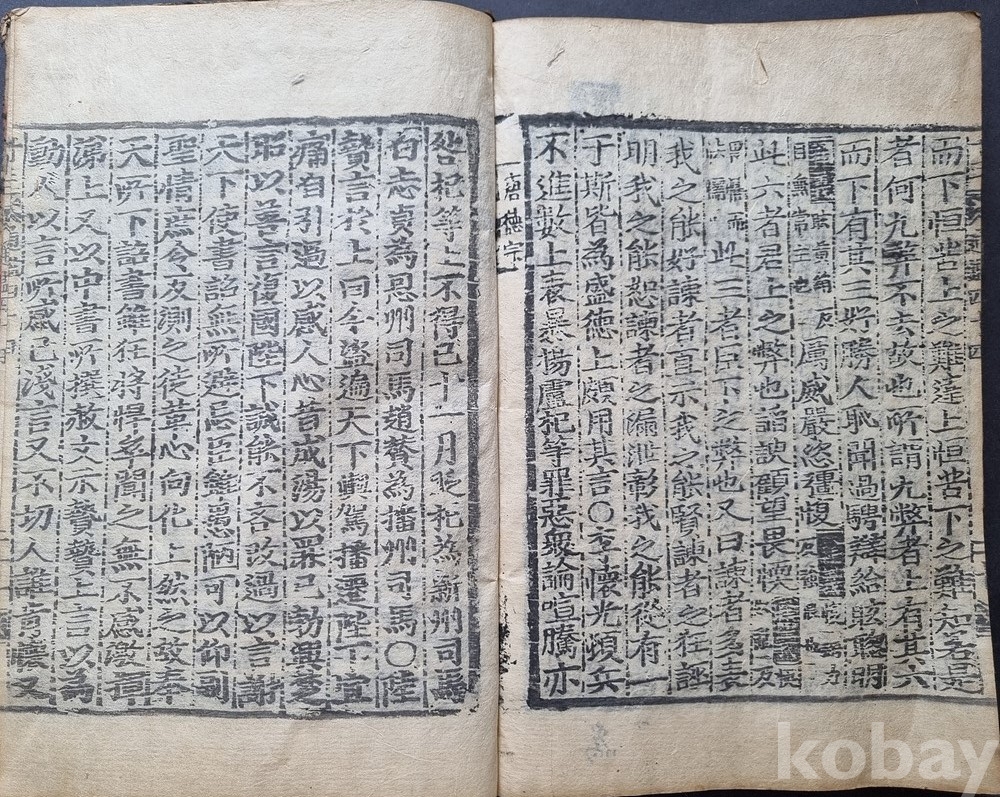 而下恒苦上之難達上恒苦下之難知若是
者何九弊不去故也所謂九弊者上有其六
而下有其三好勝人恥聞過騁辯給眩聰明
目無常主也厲威嚴恣彊愎
此六者君上之弊也諂諛顧望畏愞
此三者臣下之弊也又曰諫者多表
我之能好諫者直示我之能賢諫者之狂誣
明我之能恕諫者之漏泄彰我之能從有一
于斯皆為盛德上頗用其言○李懷光頓兵
不進數上表暴揚盧杞等罪惡衆論喧騰亦
唐德宗
咎杞等上不得已十一月貶杞為新州司馬
白志貞為恩州司馬趙贊為播州司馬○陸
贄言於上曰今盜遍天下輿駕播遷陛下宜
痛自引過以感人心昔成湯以罪己勃興楚
昭以善言復國陛下誠能不吝改過以言謝
天下使書詔無所避忌臣雖愚陋可以仰副
聖情庶令反測之徒革心向化上然之故奉
天所下詔書雖狂將悍卒聞之無不感激揮
涕上又以中書所撰赦文示贄贄上言以為
動人以言所感已淺言又不切人誰肯懷又
kobay